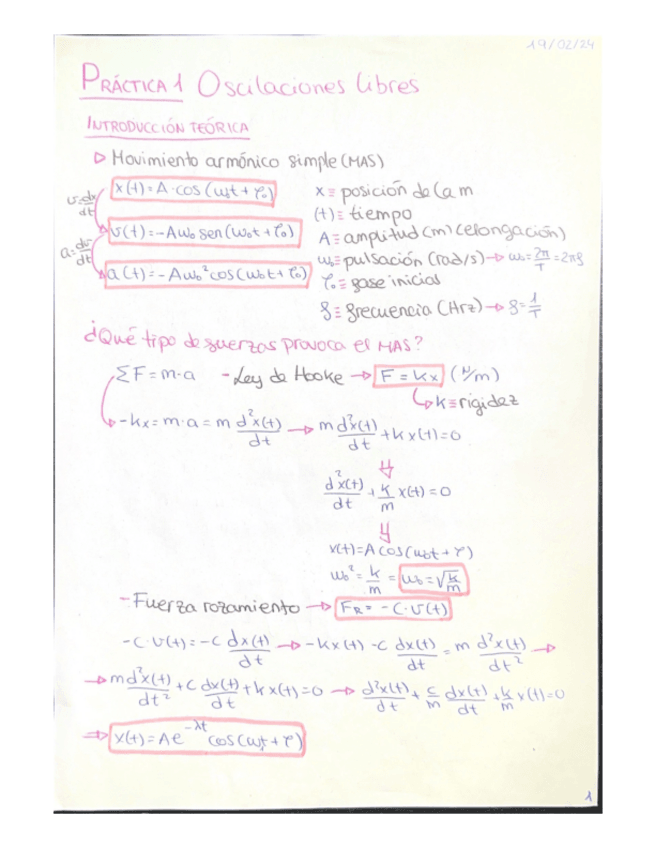 19/02/24
PRÁCTICA 1 Oscilaciones libres
INTRODUCCIÓN TEÓRICA
▷ Movimiento armónico simple (MAS)
x(t)=A·cos(ω₀t+φ₀)
x ≡ posición de la m
v=dx/dt
(t) ≡ tiempo
v(t)=-Aω₀sen(ω₀t+φ₀)
A ≡ amplitud (m) (elongación)
a=dv/dt
ω₀ ≡ pulsación (rad/s) → ω₀=2π/T=2πf
a(t)=-Aω₀²cos(ω₀t+φ₀)
φ₀ ≡ fase inicial
f ≡ frecuencia (Hrz) → f=1/T
¿Qué tipo de fuerzas provoca el MAS?
ΣF=m·a - Ley de Hooke → F=kx (N/m)
↳ k ≡ rigidez
-kx=m·a=m d²x(t)/dt → m d²x(t)/dt + kx(t)=0
d²x(t)/dt + k/m x(t)=0
x(t)=A cos(ω₀t+φ)
ω₀²=k/m = ω₀=√k/m
- Fuerza rozamiento → F_R=-C·v(t)
-C·v(t)=-C dx(t)/dt → -kx(t)-C dx(t)/dt = m d²x(t)/dt² →
→ m d²x(t)/dt² + C dx(t)/dt + kx(t)=0 → d²x(t)/dt + C/m dx(t)/dt + k/m x(t)=0
⇒ x(t)=Ae^-λt cos(ω₁t+φ)
1